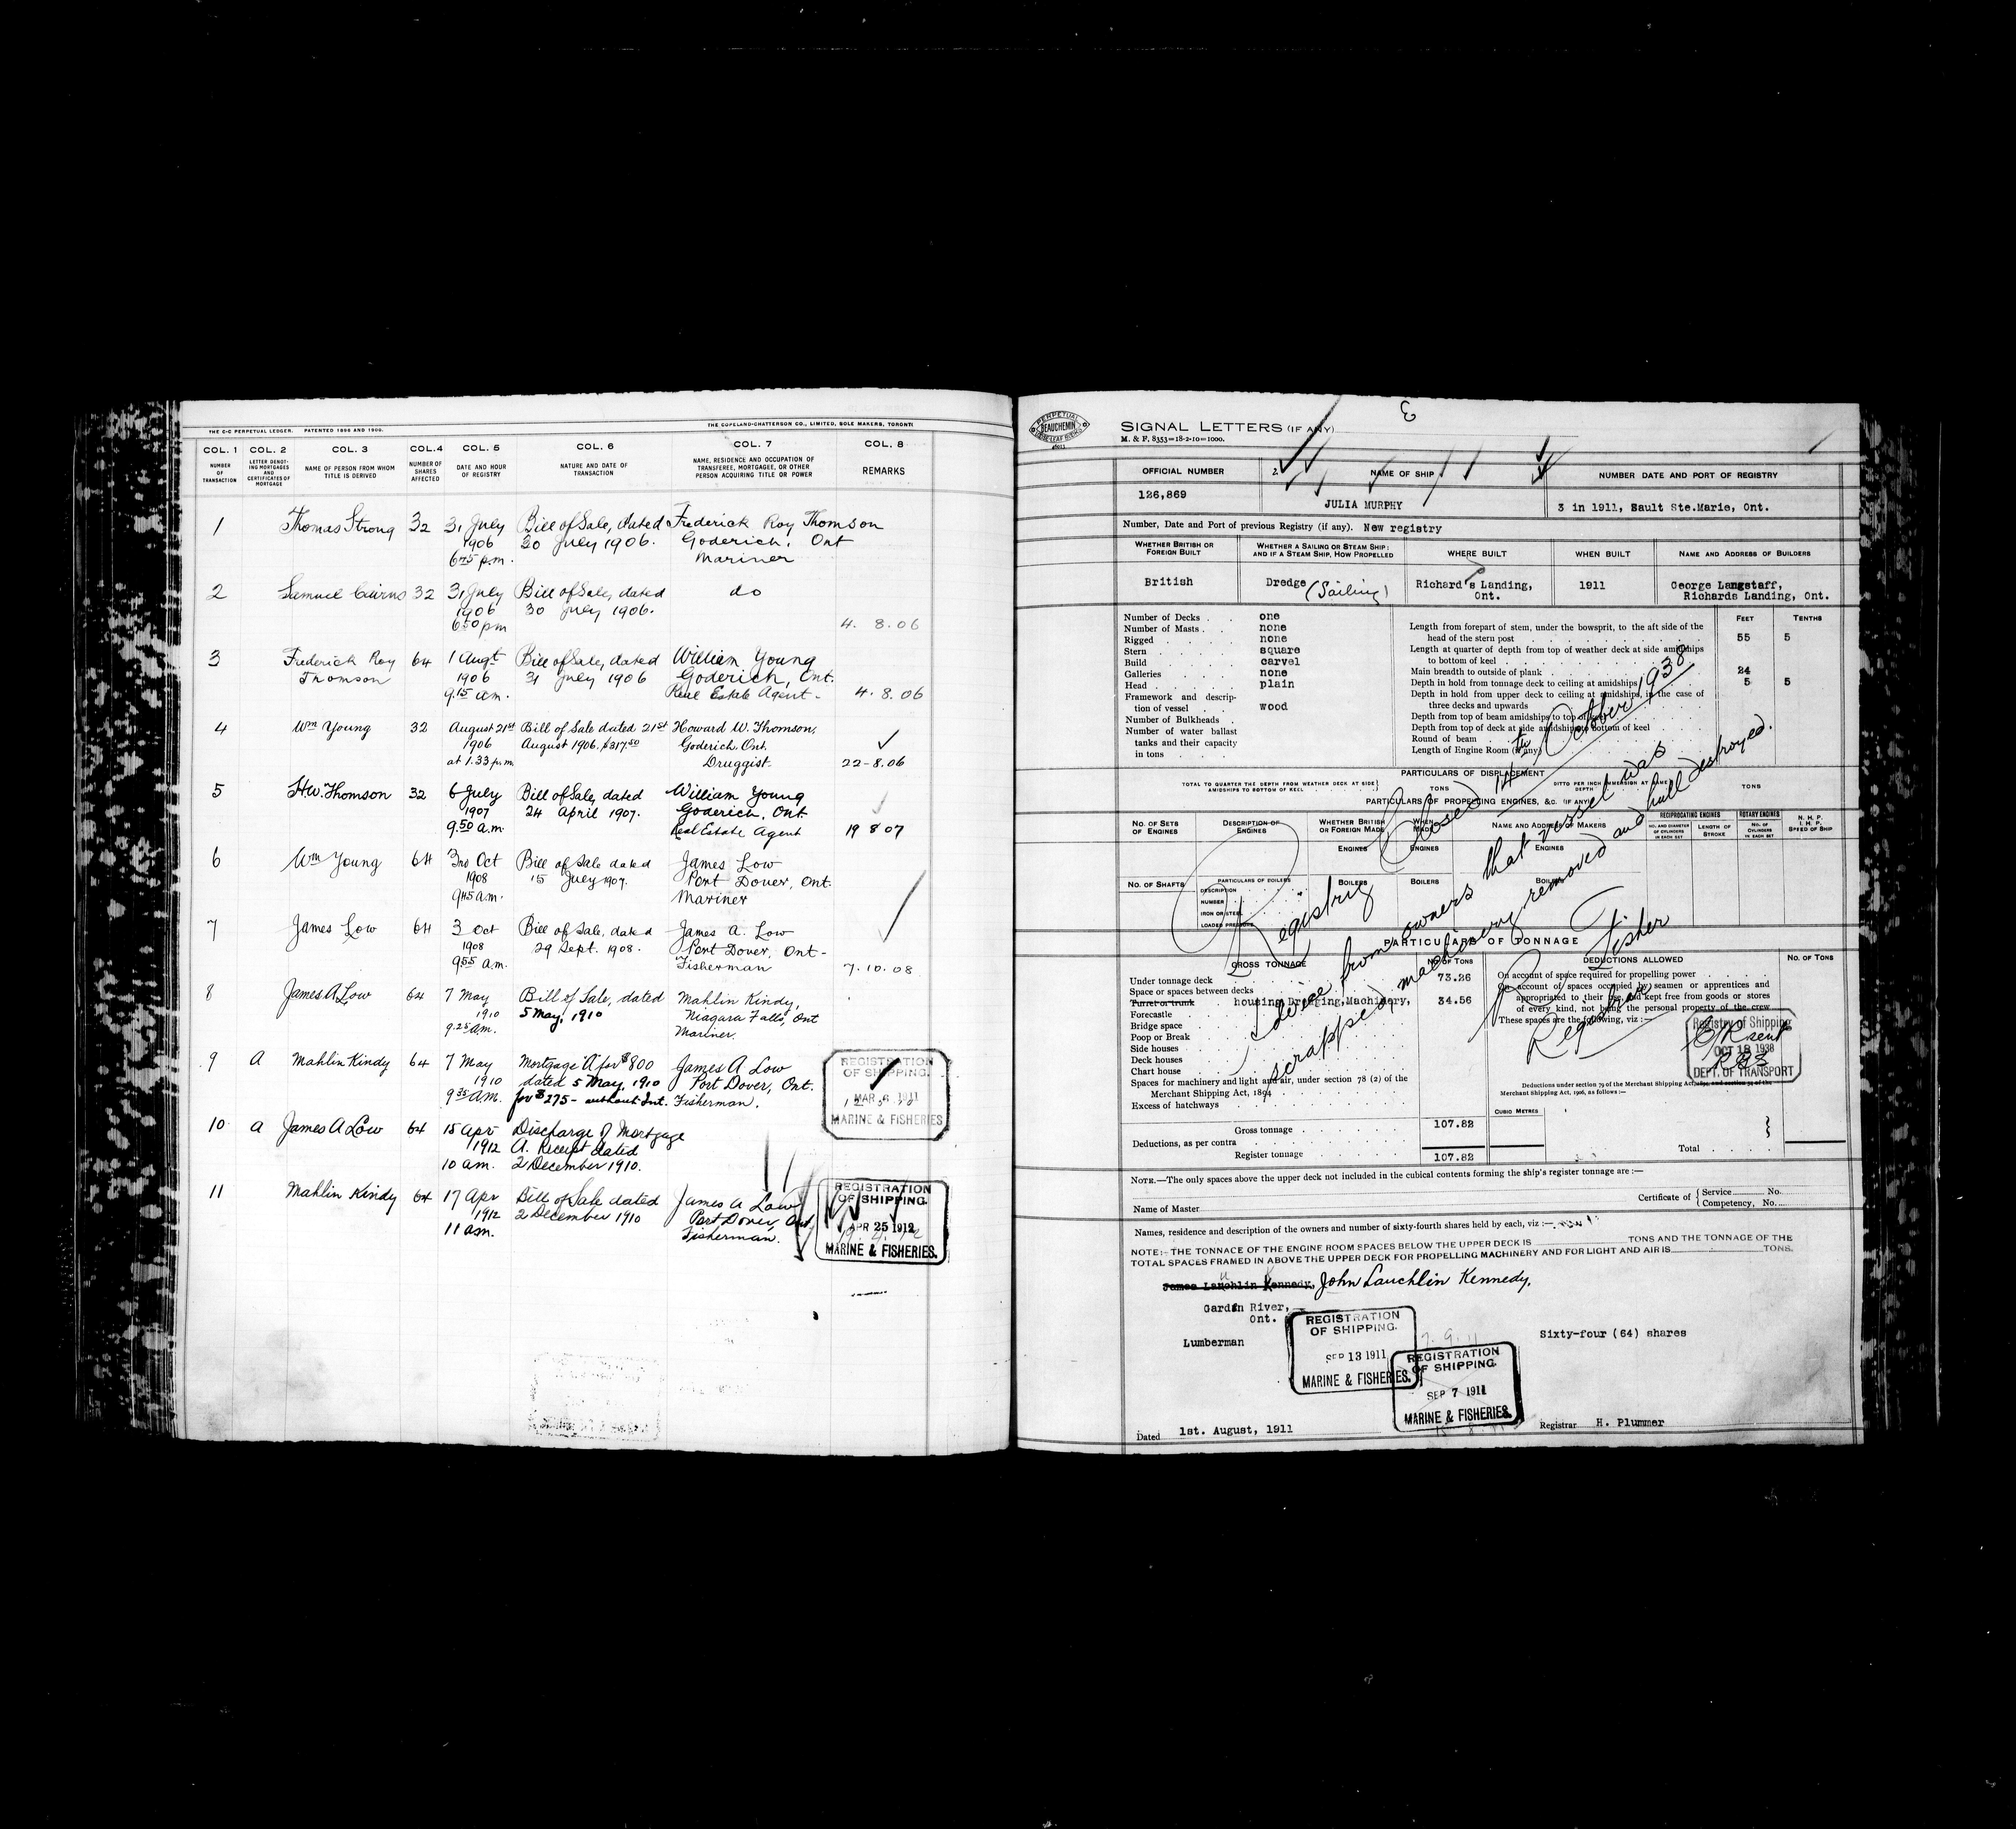 THE C-C PERPETUAL LEDGER. PATENTED 1896 AND 1900. THE COPELAND-CHATTERSON CO., LIMITED, SOLE MAKERS, TORONTO
COL. 1 COL. 2 COL. 3 COL. 4 COL. 5 COL. 6 COL. 7 COL. 8
NUMBER OF TRANSACTION LETTER DENOTING MORTGAGES AND CERTIFICATES OF MORTGAGE NAME OF PERSON FROM WHOM TITLE IS DERIVED NUMBER OF SHARES AFFECTED DATE AND HOUR OF REGISTRY NATURE AND DATE OF TRANSACTION NAME, RESIDENCE AND OCCUPATION OF TRANSFEREE, MORTGAGEE, OR OTHER PERSON ACQUIRING TITLE OR POWER REMARKS
1 Thomas Strong 32 31 July Bill of Sale, dated Frederick Roy Thomson
1906 30 July 1906. Goderich, Ont
6 45 p.m. Mariner
2 Samuel Cairns 32 31 July Bill of Sale, dated do
1906 30 July 1906.
6 50 pm 4. 8. 06
3 Frederick Roy 64 1 Augt Bill of Sale, dated William Young
Thomson 1906 31 July 1906 Goderich, Ont.
9.15 am. Real Estate Agent. 4. 8. 06
4 Wm Young 32 August 21st Bill of Sale dated 21st Howard W. Thomson,
1906 August 1906. $317.50 Goderich, Ont.
at 1.33 p.m Druggist 22-8.06
5 H.W. Thomson 32 6 July Bill of Sale, dated William Young
1907 24 April 1907. Goderich, Ont
9.50 a.m. Real Estate Agent 19 8 07
6 Wm Young 64 3rd Oct Bill of Sale dated James Low
1908 15 July 1907. Port Dover, Ont.
9.45 a.m. Mariner
7 James Low 64 3 Oct Bill of Sale, dated James A. Low
1908 29 Sept. 1908. Port Dover, Ont-
9.55 am. Fisherman 7.10.08
8 James A Low 64 7 May Bill of Sale, dated Mahlin Kindy,
1910 5 May, 1910 Niagara Falls, Ont
9.25 am. Mariner.
9 A Mahlin Kindy 64 7 May Mortgage A for $800 James A Low
1910 dated 5 May, 1910 Port Dover, Ont.
9 35 AM. for $275- without Int. Fisherman.
REGISTRATION
OF SHIPPING.
MAR 6 1911
MARINE & FISHERIES
10 a James A Low 64 15 Apr Discharge of Mortgage
1912 A. Receipt dated
10 am. 2 December 1910.
11 Mahlin Kindy 64 17 Apr Bill of Sale dated James A Low
1912 2 December 1910 Port Dover, Ont.
11 am. Fisherman.
REGISTRATION
OF SHIPPING.
APR 25 1912
MARINE & FISHERIES.
PERPETUAL
BEAUCHEMIN
SIGNAL LETTERS (IF ANY)
M. & F. 8353=18-2-10=1000.
OFFICIAL NUMBER NAME OF SHIP NUMBER DATE AND PORT OF REGISTRY
126,869 JULIA MURPHY 3 in 1911, Sault Ste.Marie, Ont.
Number, Date and Port of previous Registry (if any). New registry
WHETHER BRITISH OR FOREIGN BUILT WHETHER A SAILING OR STEAM SHIP; AND IF A STEAM SHIP, HOW PROPELLED WHERE BUILT WHEN BUILT NAME AND ADDRESS OF BUILDERS
British Dredge (Sailing) Richard's Landing, Ont. 1911 George Langstaff, Richards Landing, Ont.
Number of Decks one
Number of Masts none
Rigged none
Stern square
Build carvel
Galleries none
Head plain
Framework and description of vessel wood
Number of Bulkheads
Number of water ballast
tanks and their capacity
in tons
FEET TENTHS
Length from forepart of stem, under the bowsprit, to the aft side of the
head of the stern post 55 5
Length at quarter of depth from top of weather deck at side amidships
to bottom of keel
Main breadth to outside of plank 24
Depth in hold from tonnage deck to ceiling at amidships 5 5
Depth in hold from upper deck to ceiling at amidships, in the case of
three decks and upwards
Depth from top of beam amidships to top of keel
Depth from top of deck at side amidships to bottom of keel
Round of beam
Length of Engine Room (if any)
PARTICULARS OF DISPLACEMENT
TOTAL TO QUARTER THE DEPTH FROM WEATHER DECK AT SIDE AMIDSHIPS TO BOTTOM OF KEEL TONS DITTO PER INCH IMMERSION AT SAME DEPTH TONS
PARTICULARS OF PROPELLING ENGINES, &C. (IF ANY)
NO. OF SETS OF ENGINES DESCRIPTION OF ENGINES WHETHER BRITISH OR FOREIGN MADE WHEN MADE NAME AND ADDRESS OF MAKERS RECIPROCATING ENGINES ROTARY ENGINES N. H. P. I. H. P. SPEED OF SHIP
NO. AND DIAMETER OF CYLINDERS IN EACH SET LENGTH OF STROKE NO. OF CYLINDERS IN EACH SET
ENGINES ENGINES ENGINES
NO. OF SHAFTS PARTICULARS OF BOILERS BOILERS BOILERS BOILERS
DESCRIPTION
NUMBER
IRON OR STEEL
LOADED PRESSURE
Registry Closed 14th October 1938
Advice from owners that vessel was
scrapped, machinery removed and hull destroyed.
Fisher
Registrar
PARTICULARS OF TONNAGE
GROSS TONNAGE NO. OF TONS DEDUCTIONS ALLOWED NO. OF TONS
Under tonnage deck 73.26
Space or spaces between decks
Turret or trunk housing Dredging, Machinery, 34.56
Forecastle
Bridge space
Poop or Break
Side houses
Deck houses
Chart house
Spaces for machinery and light and air, under section 78 (2) of the
Merchant Shipping Act, 1894
Excess of hatchways
Gross tonnage 107.82
Deductions, as per contra
Register tonnage 107.82
On account of space required for propelling power
On account of spaces occupied by seamen or apprentices and
appropriated to their use, and kept free from goods or stores
of every kind, not being the personal property of the crew
These spaces are the following, viz :—
Registry of Shipping
OCT 18 1938
DEPT. OF TRANSPORT
Deductions under section 79 of the Merchant Shipping Act, 1894, and section 54 of the
Merchant Shipping Act, 1906, as follows :—
CUBIC METRES
Total
NOTE.—The only spaces above the upper deck not included in the cubical contents forming the ship's register tonnage are :—
Name of Master Certificate of Service No. Competency, No.
Names, residence and description of the owners and number of sixty-fourth shares held by each, viz :—
NOTE:- THE TONNAGE OF THE ENGINE ROOM SPACES BELOW THE UPPER DECK IS TONS AND THE TONNAGE OF THE
TOTAL SPACES FRAMED IN ABOVE THE UPPER DECK FOR PROPELLING MACHINERY AND FOR LIGHT AND AIR IS TONS.
James Lauchlin Kennedy, John Lauchlin Kennedy.
Garden River,
Ont.
Lumberman Sixty-four (64) shares
REGISTRATION
OF SHIPPING.
SEP 13 1911
MARINE & FISHERIES.
7. 9. 11
REGISTRATION
OF SHIPPING.
SEP 7 1911
MARINE & FISHERIES.
Dated 1st. August, 1911 Registrar H. Plummer